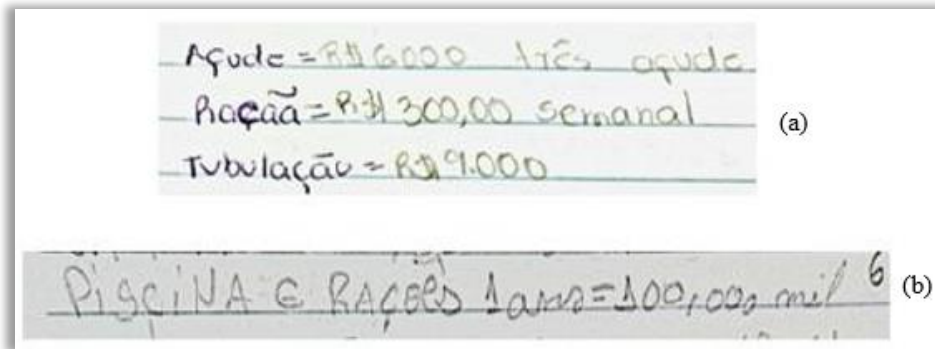 Açude = R$ 6000 três açude
Raçãã = R$ 300,00 semanal
Tubulação = R$ 9.000
(a)
PiSCiNA E RAÇÕES 1 ano = 100,000 mil 6
(b)